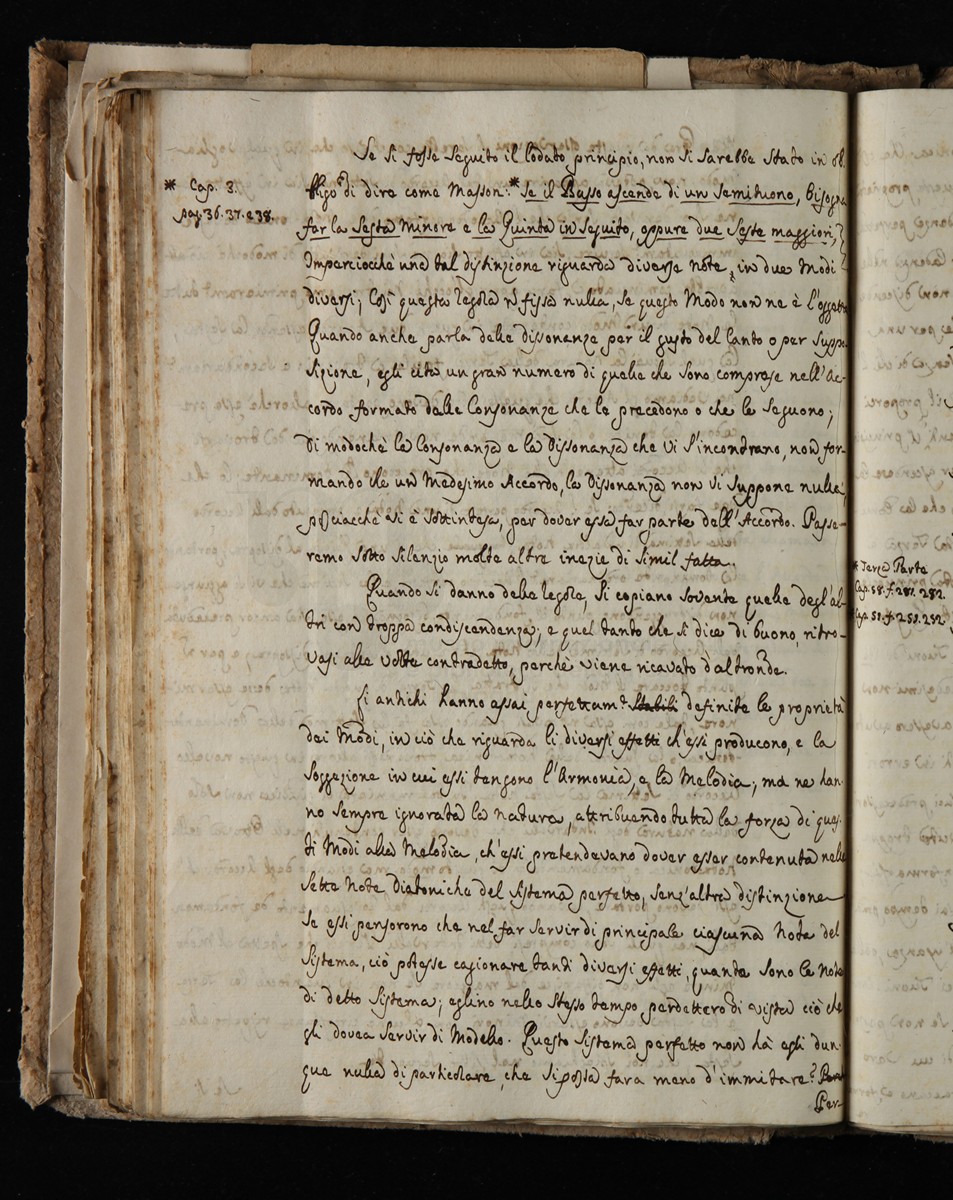 Se si fosse seguito il lodato principio, non si sarebbe stato in ob-
* Cap. 3.
pag. 36. 37. e 38.
bligo di dire come Masson:* se il Basso ascende di un semituono, bisogna
far la Sesta minore e la Quinta in seguito, oppure due Seste maggiori,
Imperciocchè una tal distinzione riguarda diverse note, in due Modi
diversi; Così questa regola n fissa nulla, se questo Modo non ne è l'oggetto
Quando anche parla delle dissonanze per il gusto del Canto o per suppo-
sizione, egli cita un gran numero di quelle che sono comprese nell'Ac-
cordo formato dalle Consonanze che le precedono o che le seguono;
di modochè la Consonanza e la dissonanza che vi s'incontrano, non for-
mando che un Medesimo Accordo, la dissonanza non vi suppone nulla,
posciacchè vi è sottintesa, per dover essa far parte dell'Accordo. Passe-
remo sotto silenzio molte altre inezie di simil fatta.
Quando si danno delle regole, si copiano sovente quelle degl'al-
tri con troppa condiscendenza; e quel tanto che si dice di buono, ritro-
vasi alle volte contradetto, perchè viene ricavato d'altronde.
Li antichi hanno assai perfettamte stabili definite le proprietà
dei Modi, in ciò che riguarda li diversi effetti ch'essi producono, e la
Soggezione in cui essi tengono l'Armonia, e la Melodia; ma ne han-
no sempre ignorata la natura, attribuendo tutta la forza di ques-
ti Modi alla Melodia, ch'essi pretendevano dover esser contenuta nelle
sette note diatoniche del sistema perfetto, senz'altra distinzione
Se essi pensorono che nel far servir di principale ciascuna Nota del
Sistema, ciò potesse cagionare tanti diversi effetti, quante sono le note
di detto Sistema; eglino nello stesso tempo perdettero di vista ciò che
gli dovea servir di Modello. Questo sistema perfetto non hà egli dun-
que nulla di particolare, che si possa fara meno d'immitare?
Per-
* Terza Parte
Cap. 58. f. 281. 282.